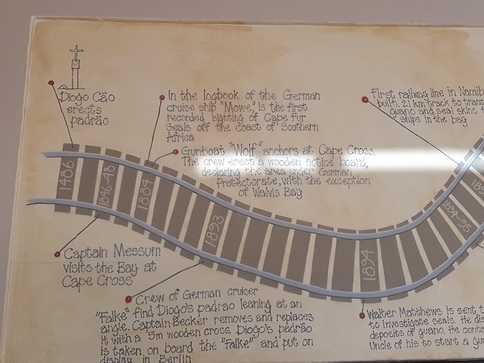 Diogo Cão
erects
padrão
In the logbook of the German
cruise ship "Möwe," is the first
recorded sighting of Cape fur
Seals off the coast of Southern
Africa
First railway line in Namib
built. 21 km track to trans
guano and seal skins
ships in the bay
Gunboat "Wolf" anchors at Cape Cross.
The crew erect a wooden notice board,
declaring the area under German
Protectorate, with the exception
of Walvis Bay
1486
1846-48
1884
1893
1894
1894-95
Captain Messum
visits the Bay at
Cape Cross
Crew of German cruiser
"Falke" find Diogo's padrão leaning at an
angle. Captain Becker removes and replaces
it with a 5m wooden cross. Diogo's padrão
is taken on board the "Falke" and put on
display in Berlin
Walter Matthews is sent t
to investigate seals. He dis
deposits of guano. He con
Uncle of his to start a gu